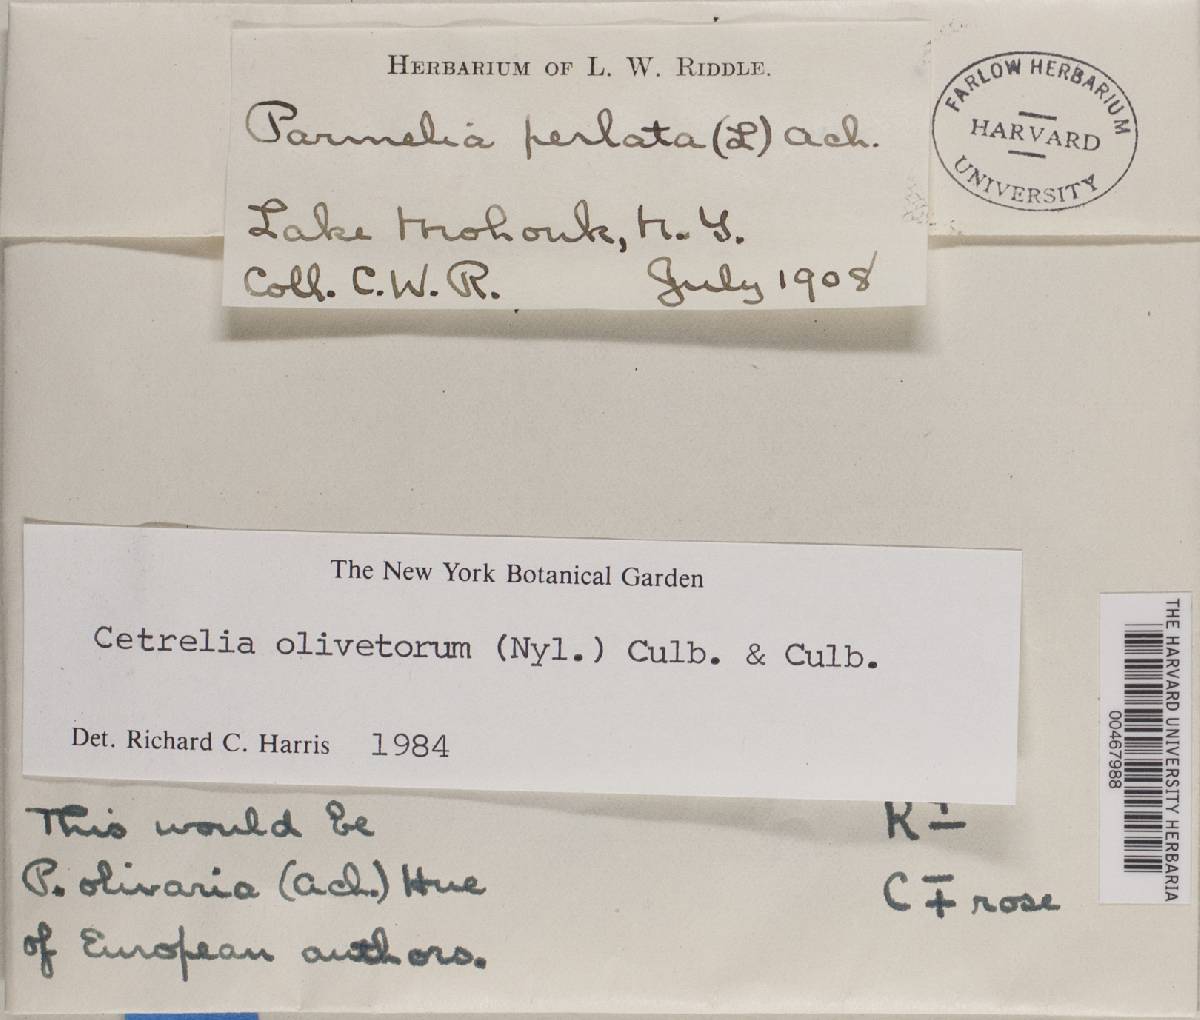 HERBARIUM OF L. W. RIDDLE.
Parmelia perlata (L) Ach.
Lake Mohonk, N. Y.
Coll. C. W. R. July 1908
FARLOW HERBARIUM
HARVARD
UNIVERSITY
The New York Botanical Garden
Cetrelia olivetorum (Nyl.) Culb. & Culb.
Det. Richard C. Harris 1984
This would be
P. olivaria (Ach.) Hue
of European authors.
K ±
C ∓ rose
THE HARVARD UNIVERSITY HERBARIA
00467988